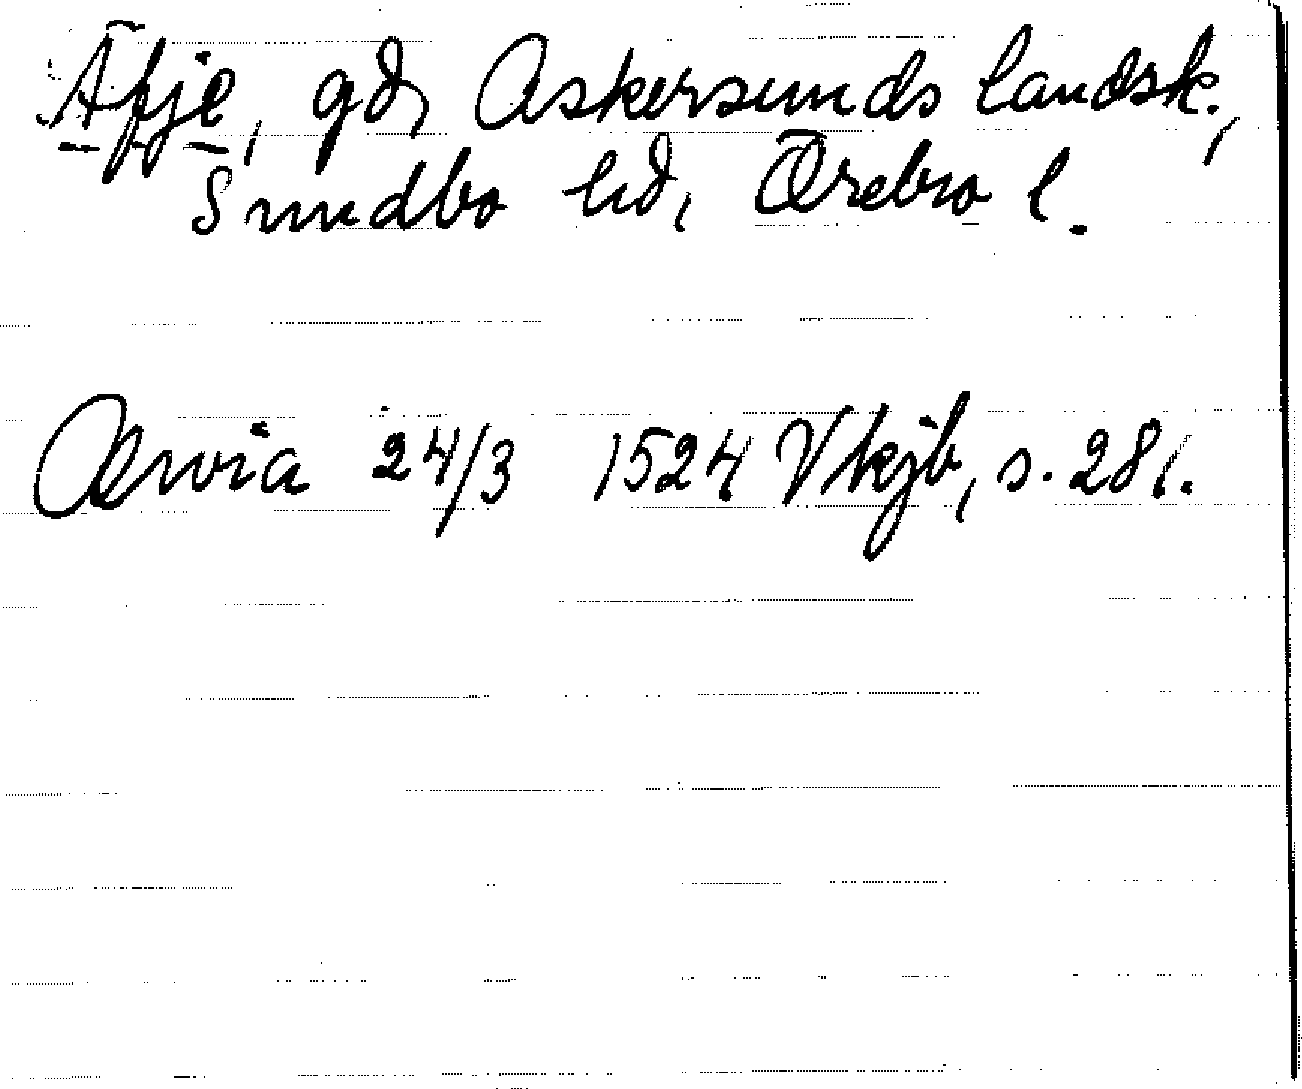 Äfje, gd, Askersunds landsk.,
Sundbo hd, Örebro l.
Ærvia 24/3 1524 Vkjb, s. 281.